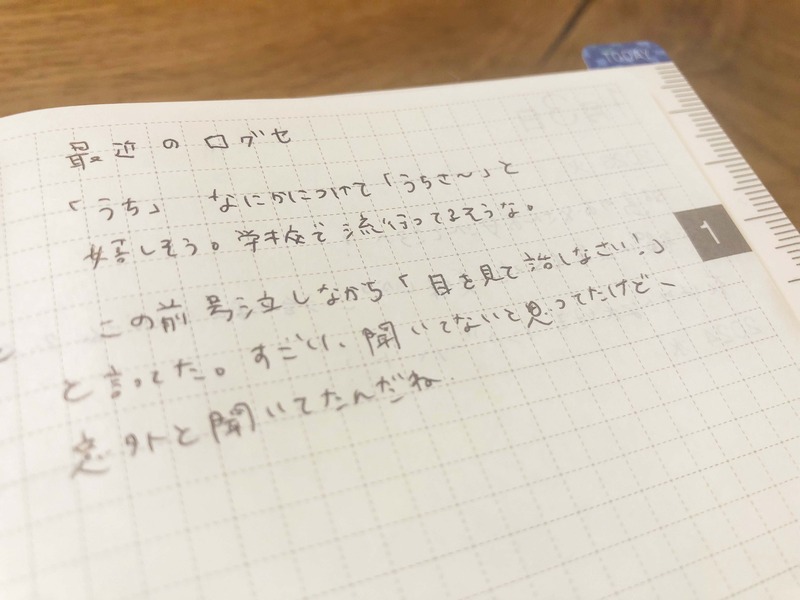 TODAY
最近の口グセ
「うち」 なにかにつけて「うちさ〜」と
嬉しそう。学校で流行ってるそうな。
1
この前号泣しながら「目を見て話しなさい!」
と言ってた。すごい、聞いてないと思ってたけどー
意外と聞いてたんだね